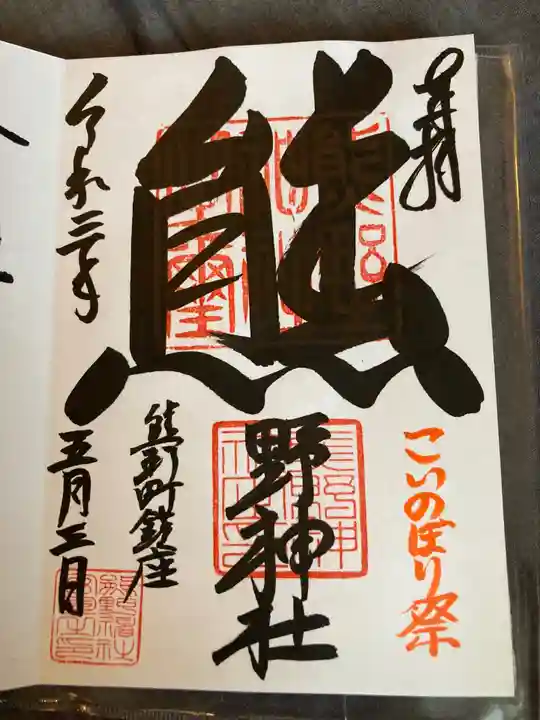 奉拝
こいのぼり祭
熊野神社
熊野町鎮座
令和三年
五月三日